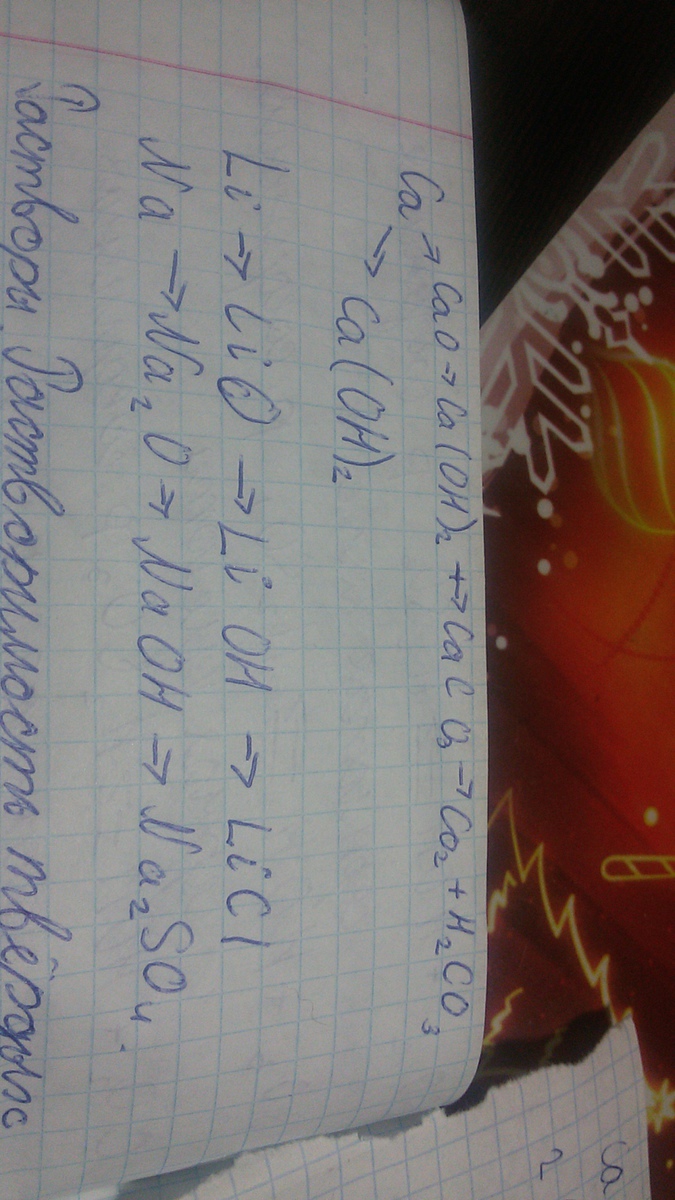 Ca → CaO → Ca(OH)₂ +→ CaCO₃ → CO₂ + H₂CO₃
↘ Ca(OH)₂
Li → LiO → LiOH → LiCl
Na → Na₂O → NaOH → Na₂SO₄.
Растворы. Растворимость твёрдых
Ca
2